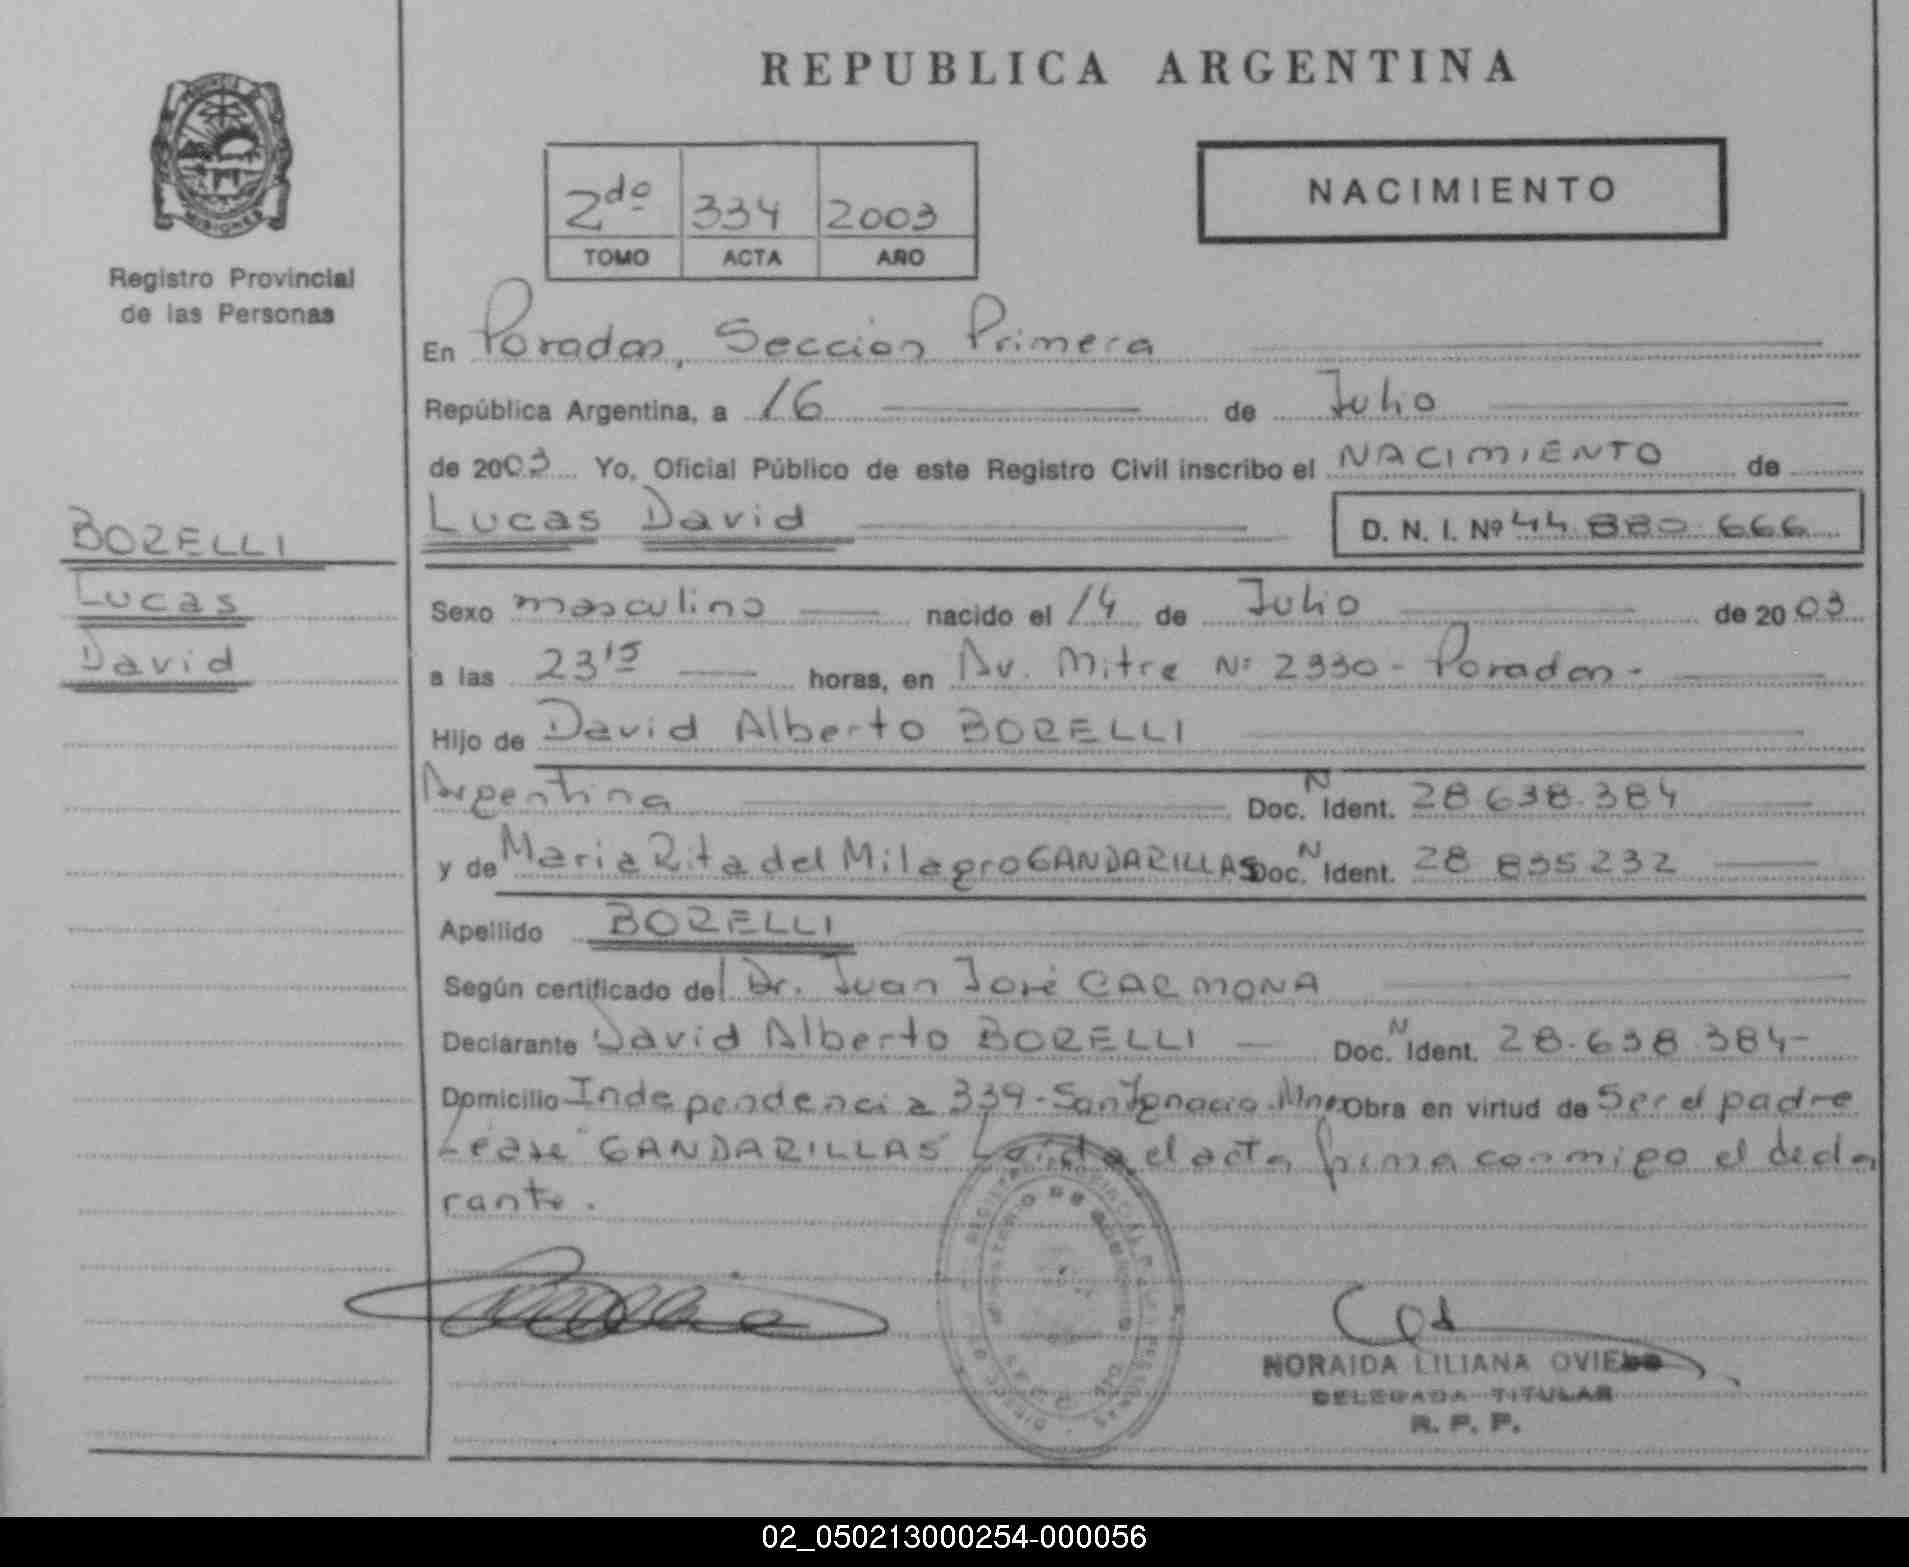 REPUBLICA ARGENTINA
2do 334 2003
TOMO ACTA AÑO
NACIMIENTO
MISIONES
Registro Provincial
de las Personas
En Posadas, Sección Primera
República Argentina, a 16 de Julio
de 2003 Yo, Oficial Público de este Registro Civil inscribo el NACIMIENTO de
Lucas David D. N. I. Nº 44.880.666
BORELLI
Lucas
David
Sexo masculino nacido el 14 de Julio de 2003
a las 23 15 horas, en Av. Mitre Nº 2330 - Posadas -
Hijo de David Alberto BORELLI
Argentina Doc. N Ident. 28.638.384
y de Maria Rita del Milagro GANDARILLAS Doc. N Ident. 28 835 232
Apellido BORELLI
Según certificado del Dr. Juan José CARMONA
Declarante David Alberto BORELLI - Doc. N Ident. 28.638.384-
Domicilio Independencia 339 - San Ignacio. Mnes Obra en virtud de Ser el padre
Léase "GANDARILLAS" Leída el acta firma conmigo el decla
rante.
NORAIDA LILIANA OVIEDO
DELEGADA TITULAR
R. P. P.
02_050213000254-000056